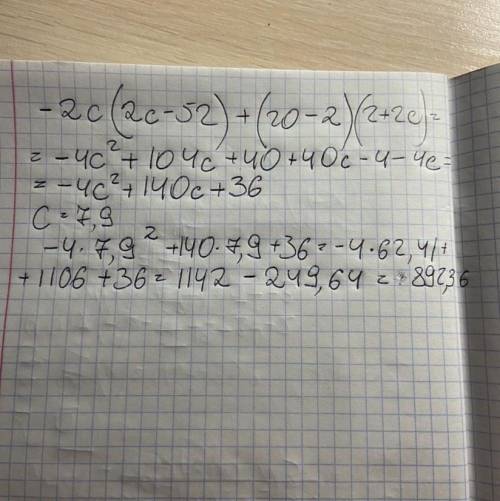 -2c(2c-52)+(20-2)(2+2c)=
= -4c²+104c+40+40c-4-4c=
= -4c²+140c+36
C=7,9
-4·7,9²+140·7,9+36=-4·62,41+
+1106+36=1142-249,64=892,36